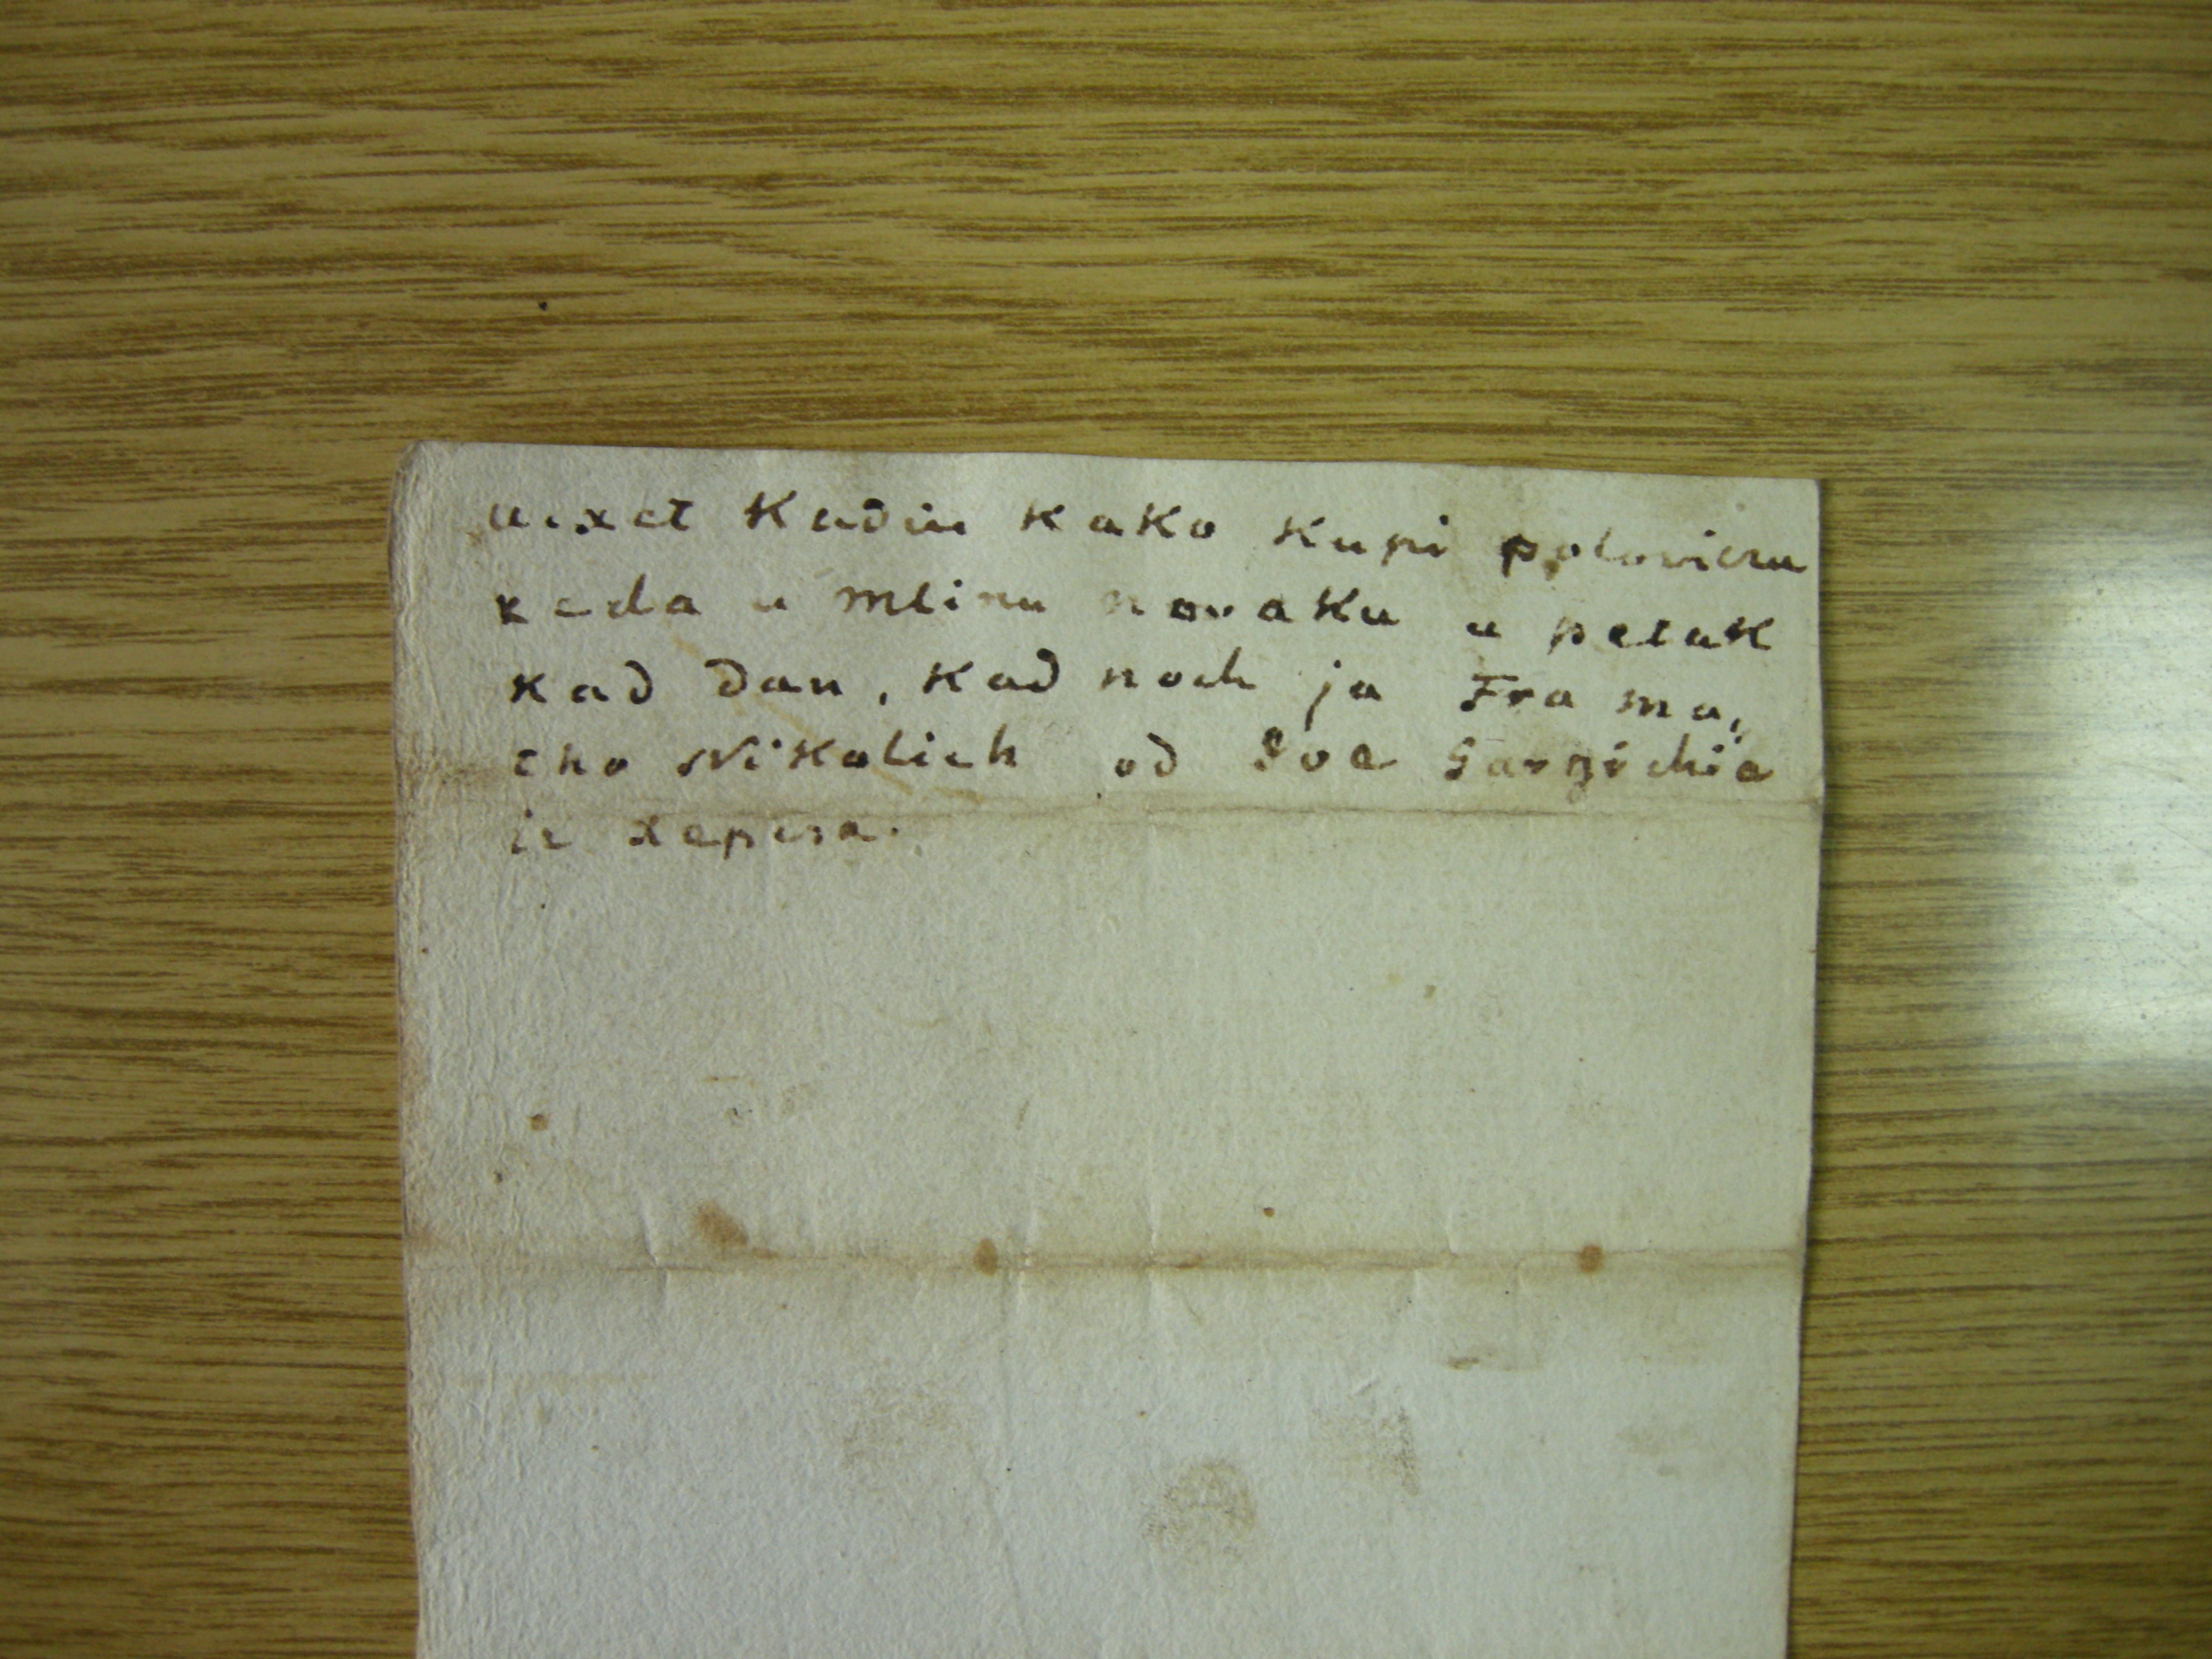 uixet Kadiu kako kupi polovicu
reda u mlinu novaku u petak
kad dan, kad noch ja Fra ma,,
tho Nikolich od Joe Gargichia
iz xepcsa.